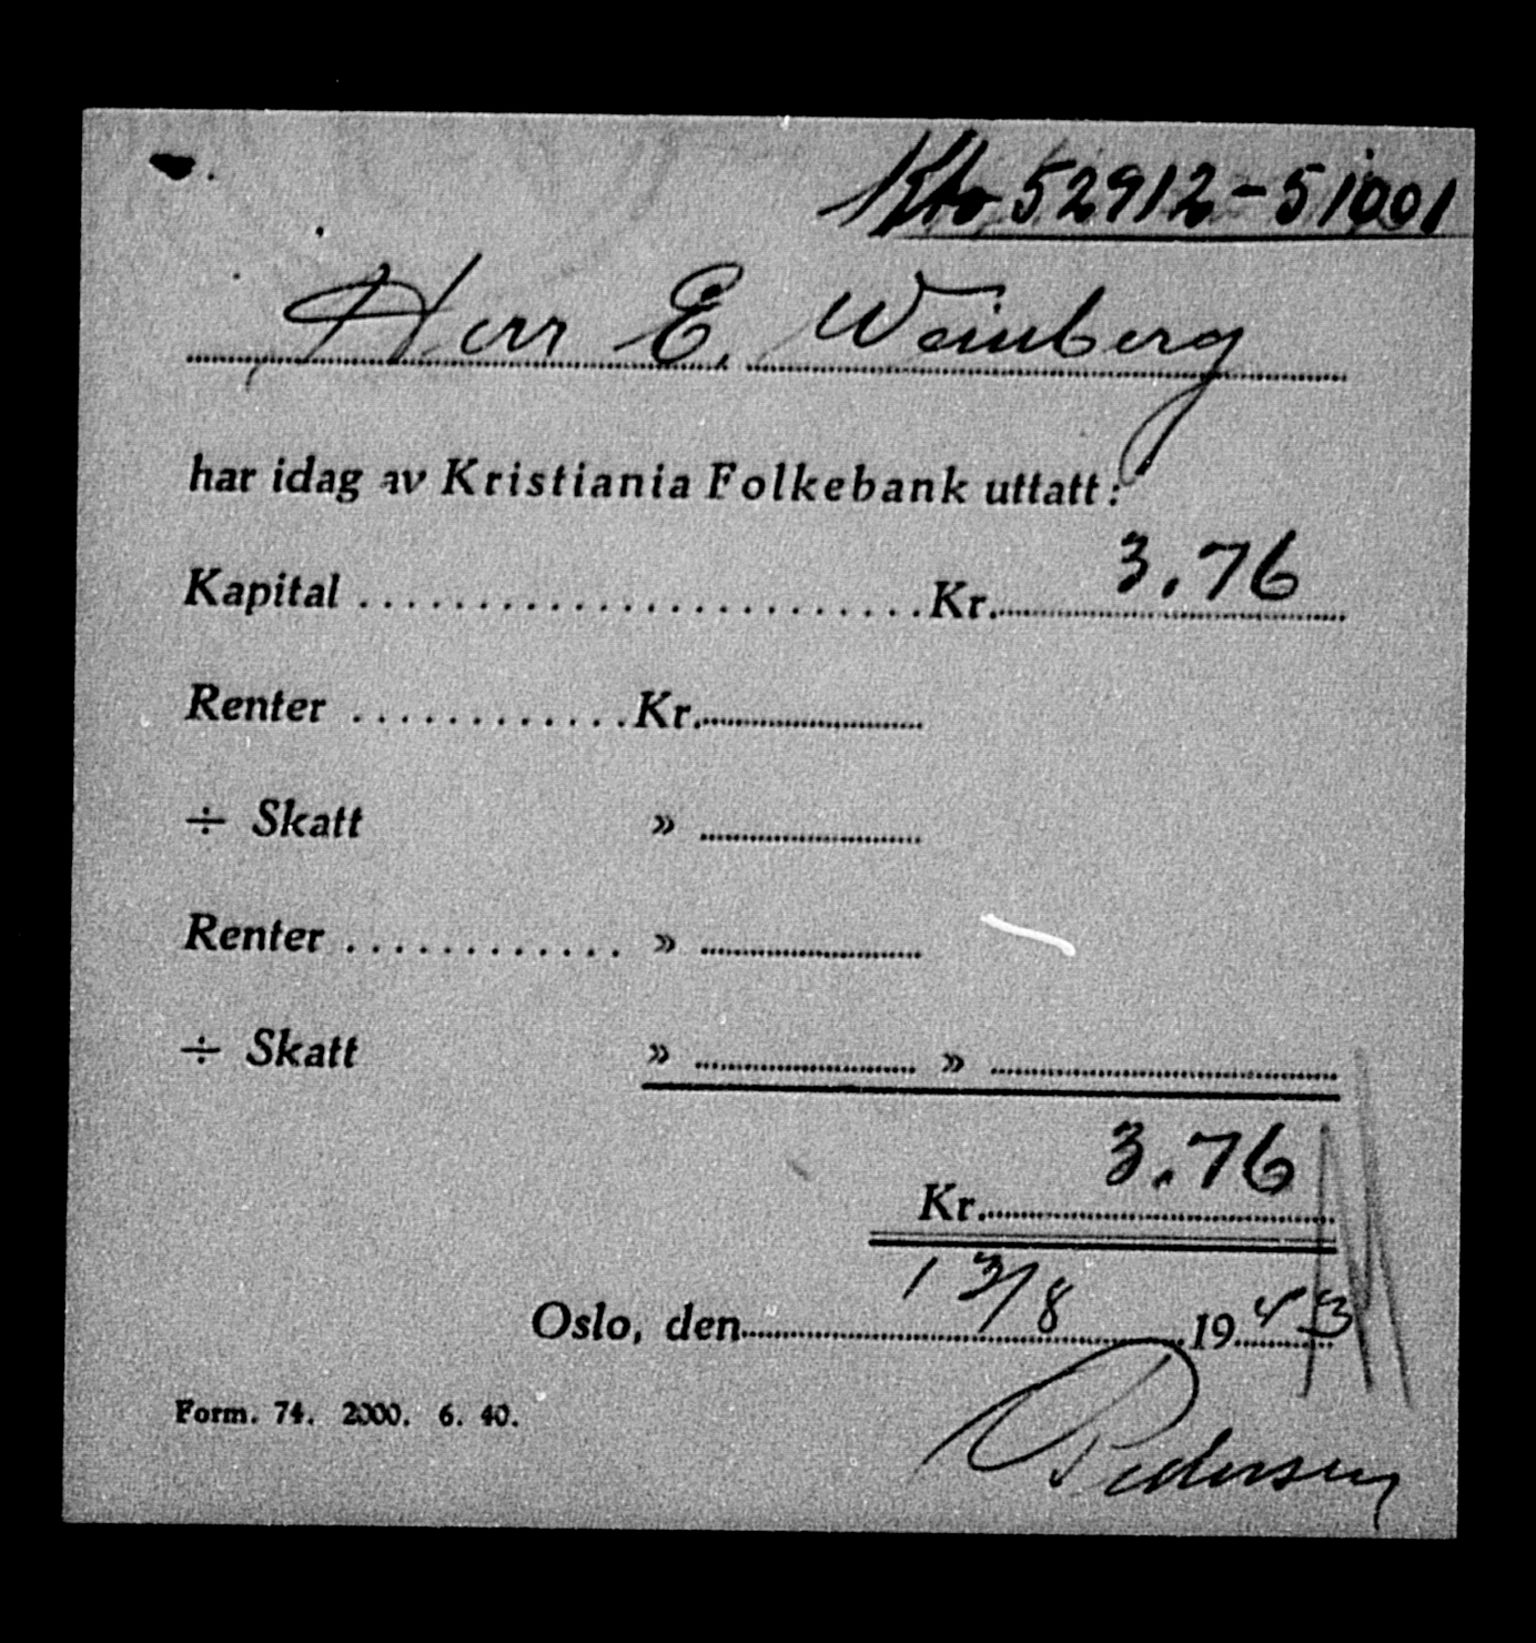 Kto 52912-51001
Herr E. Weinberg
har idag av Kristiania Folkebank uttatt:
Kapital ........................ Kr. 3.76
Renter ............ Kr.
÷ Skatt »
Renter ............ »
÷ Skatt » »
Kr. 3.76
Oslo, den 13/8 1943
Form. 74. 2000. 6. 40.
Pedersen